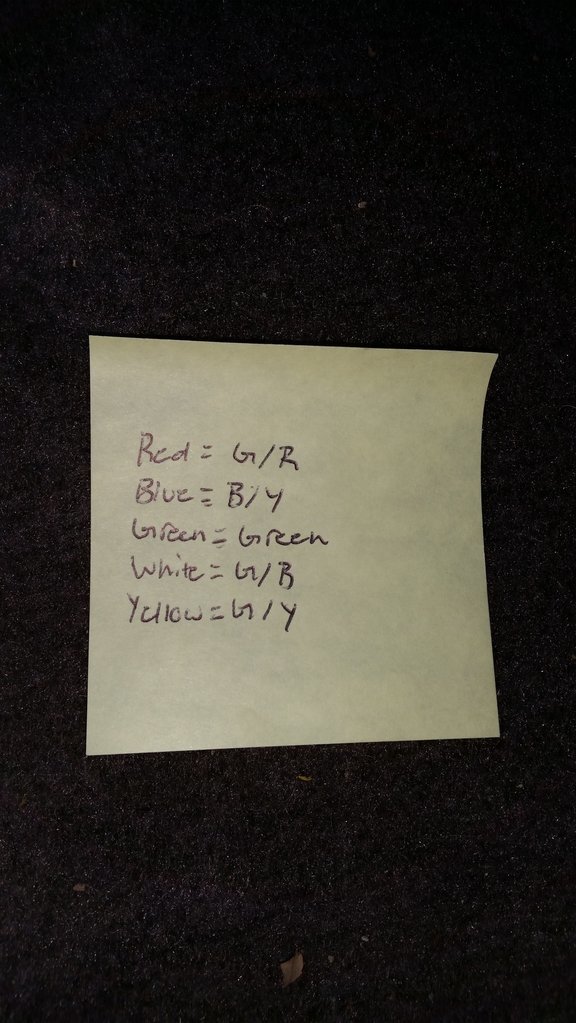 Red = G/R
Blue = B/Y
Green = Green
White = G/B
Yellow = G/Y